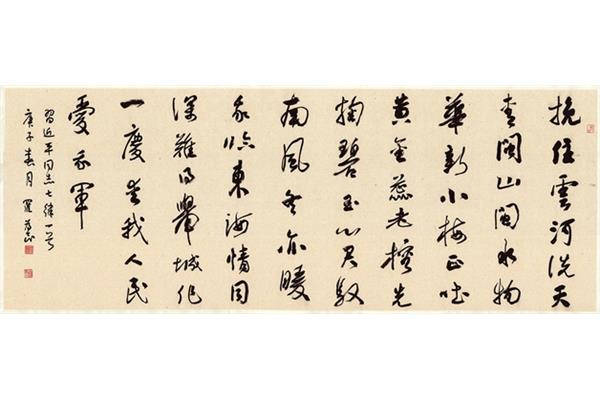 挽住雲河洗天
青閩山閩水物
華新小梅正吐
黄金蕊老榕先
掬碧玉心君馭
南風冬亦暖
我臨東海情同
深難得舉城作
一慶愛我人民
愛我軍
習近平同志七律一首
庚子春月